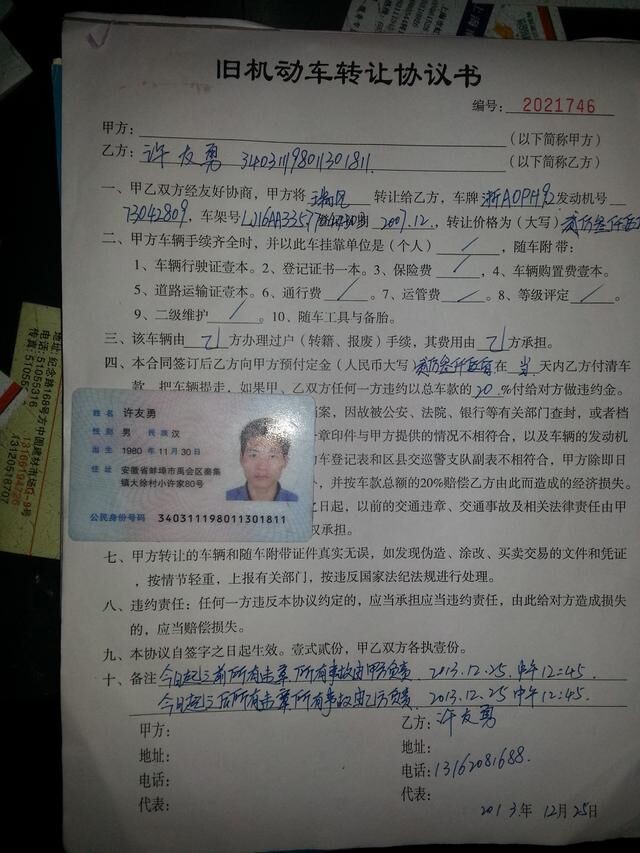 旧机动车转让协议书
编号: 2021746
甲方: (以下简称甲方)
乙方: 许友勇 340311198011301811 (以下简称乙方)
一、甲乙双方经友好协商，甲方将 转让给乙方，车牌 浙A0PH92 发动机号
73042809. 车架号 LJ16AA335 2007.12. ，转让价格为（大写）
二、甲方车辆手续齐全时，并以此车挂靠单位是（个人） / ，随车附带：
1、车辆行驶证壹本。2、登记证书一本。3、保险费 / ，4、车辆购置费壹本。
5、道路运输证壹本。6、通行费 / 。7、运管费 / 。8、等级评定 / 。
9、二级维护 / 。10、随车工具与备胎。
三、该车辆由 乙 方办理过户（转籍、报废）手续，其费用由 乙 方承担。
四、本合同签订后乙方向甲方预付定金（人民币大写） 在 当 天内乙方付清车
款，把车辆提走，如果甲、乙双方任何一方违约以总车款的 20 %付给对方做违约金。
档案，因故被公安、法院、银行等有关部门查封，或者档
章印件与甲方提供的情况不相符合，以及车辆的发动机
动车登记表和区县交巡警支队副表不相符合，甲方除即日
并按车款总额的20%赔偿乙方由此而造成的经济损失。
之日起，以前的交通违章、交通事故及相关法律责任由甲
承担。
姓名 许友勇
性别 男 民族 汉
出生 1980 年 11 月 30 日
住址 安徽省蚌埠市禹会区秦集
镇大徐村小许家80号
公民身份号码 340311198011301811
七、甲方转让的车辆和随车附带证件真实无误，如发现伪造、涂改、买卖交易的文件和凭证
，按情节轻重，上报有关部门，按违反国家法纪法规进行处理。
八、违约责任：任何一方违反本协议约定的，应当承担应当违约责任，由此给对方造成损失
的，应当赔偿损失。
九、本协议自签字之日起生效。壹式贰份，甲乙双方各执壹份。
十、备注 今日起之前所有违章,所有事故由甲方负责 2013.12.25.中午12:45
今日起之后所有违章,所有事故由乙方负责 2013.12.25中午12:45.
甲方:
乙方: 许友勇
地址:
地址:
电话:
电话: 13162081688.
代表:
代表:
2013.年 12月25日
地址:纪念路168号方中圆建材市场G-9号
电话:51055316
传真:51055
13120578707